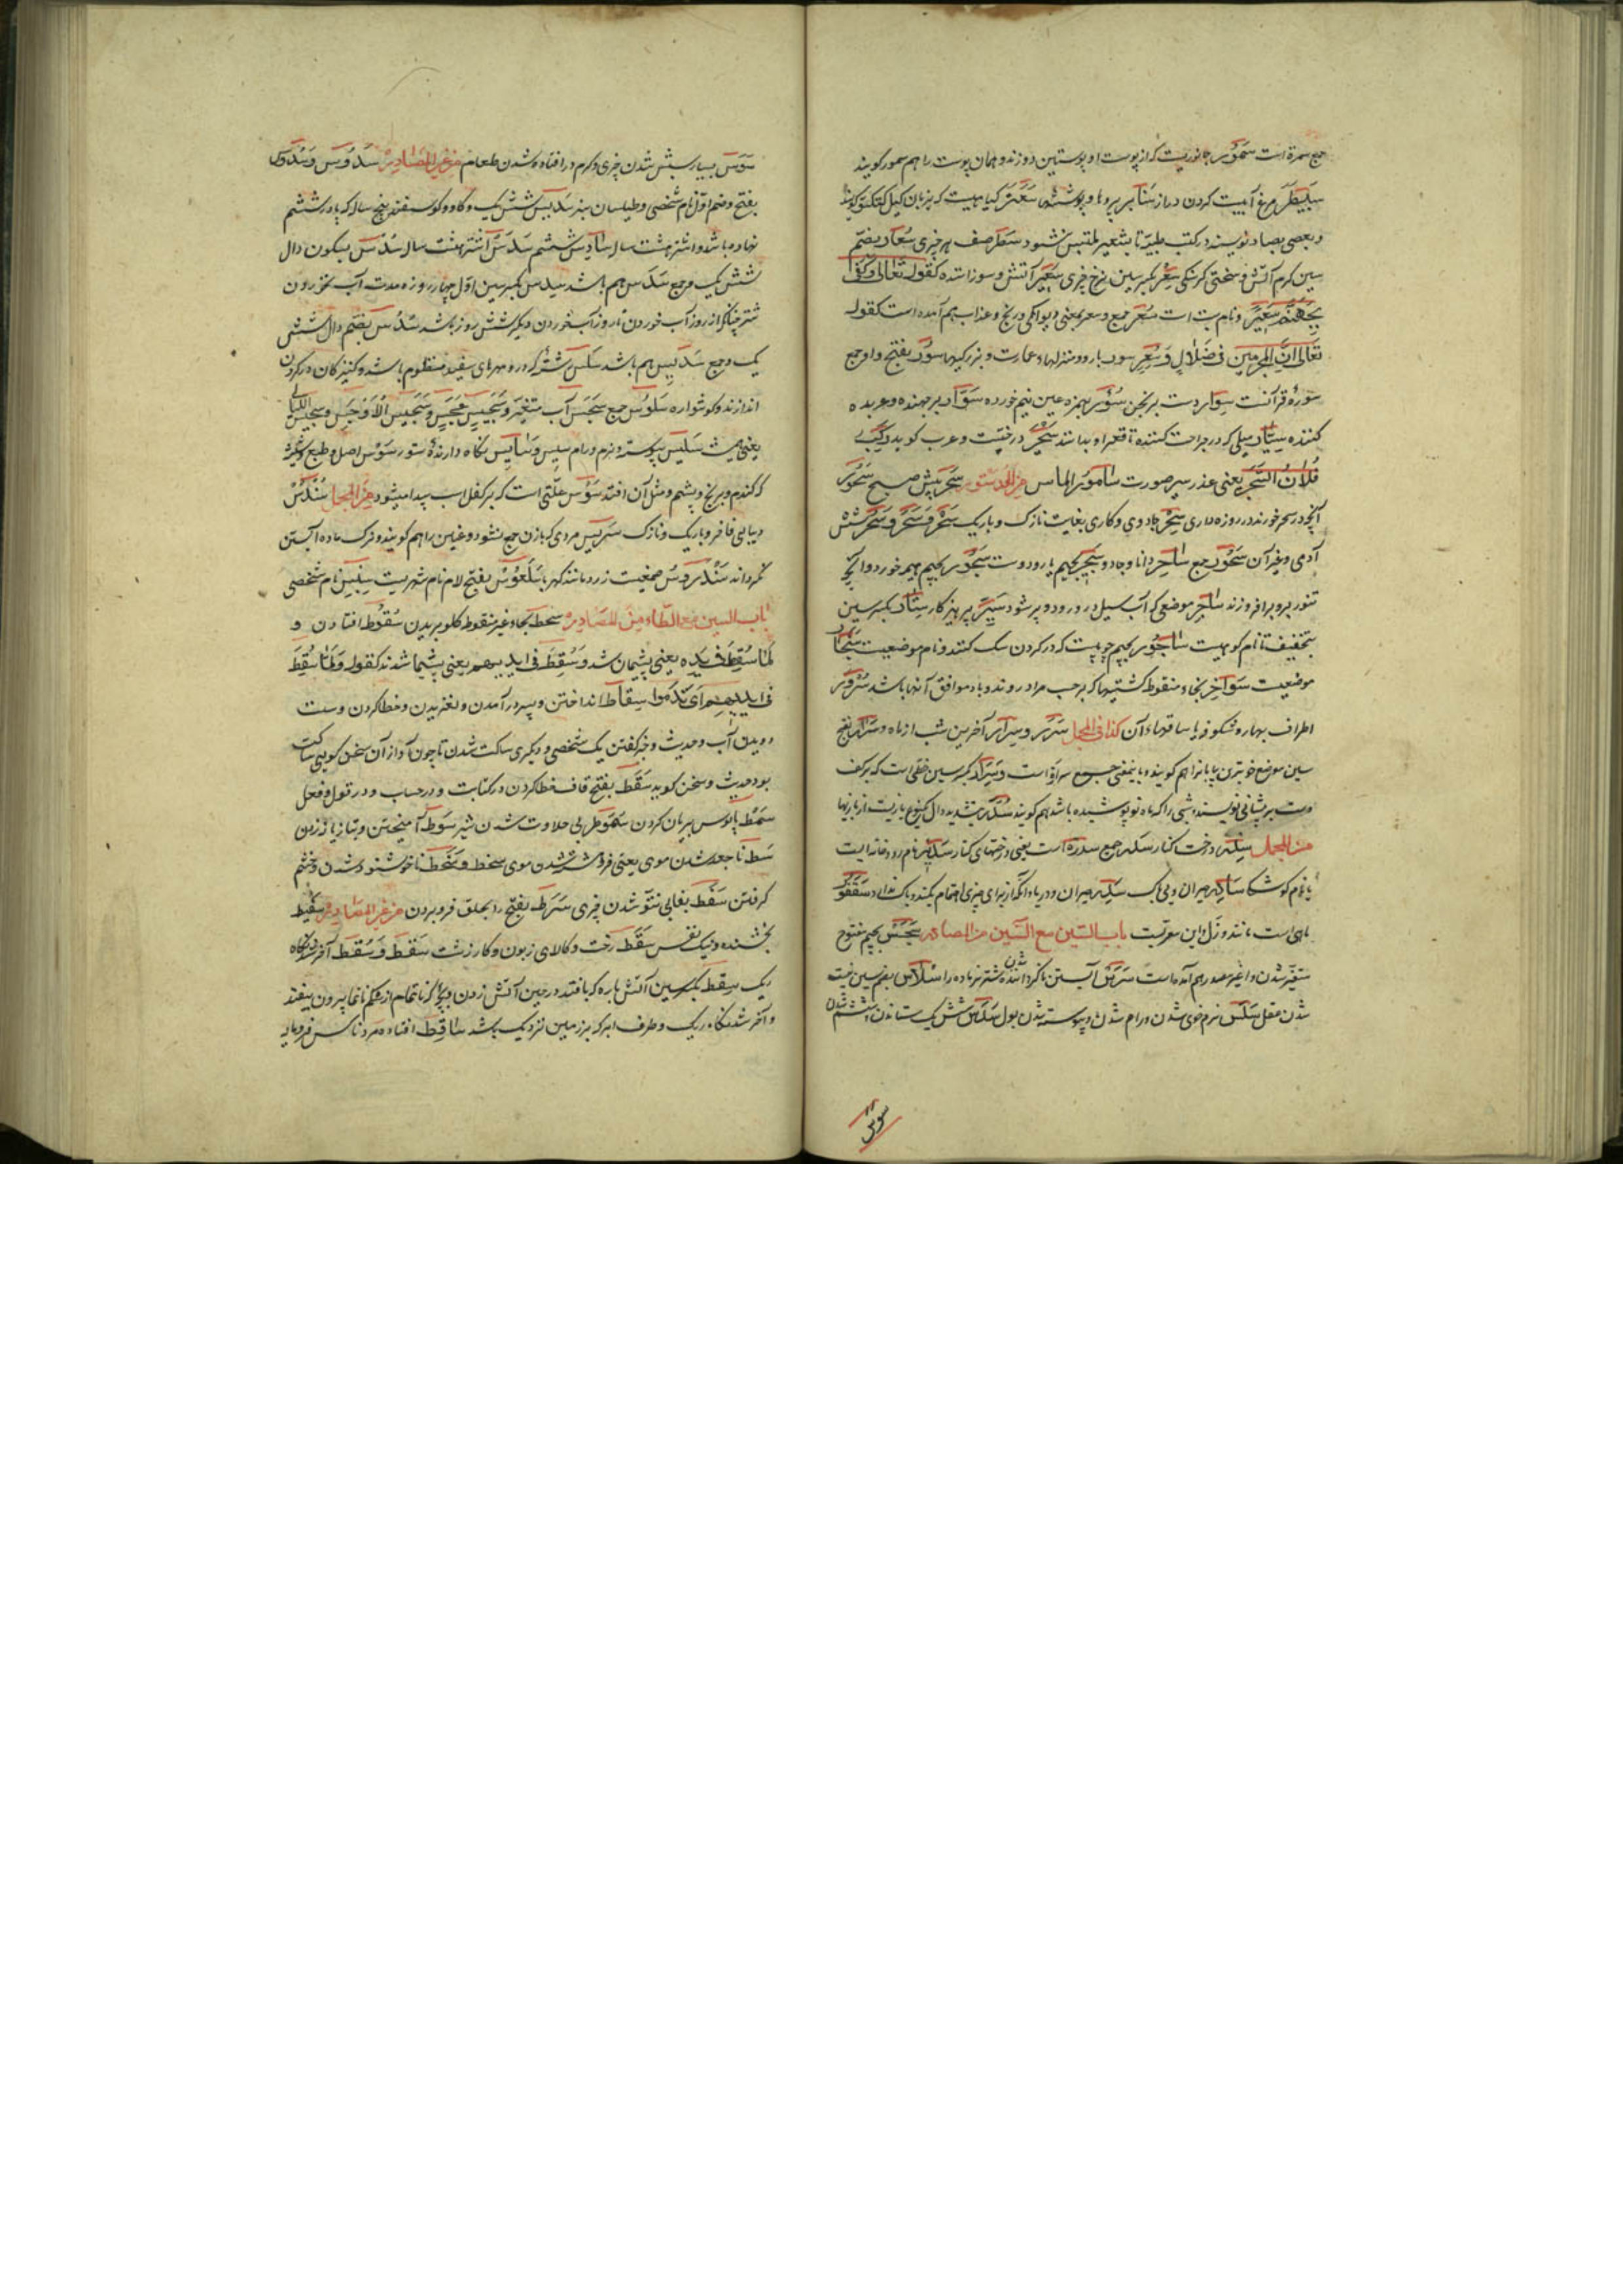 جمع سمرة است سمور جانوریست که از پوست او پوستین دوزند و همان پوست را هم سمور گویند
سبیطر مرغ آبیست گردن دراز سنابر پرو بال و پوششها سعتر گیاهیست که بزبان گیل گویند
و بعضی بصاد نویسند در کتب طبیه تا بشعیر ملتبس نشود سطر صف هر چیزی سعار بضم
سین گرمی آتش و سختی گرسنگی سعر بکسر سین نرخ چیزی سعیر آتش و سوزاننده کقوله تعالی وکفی
بجهنم سعیرا و نام بت است سعر جمع و سعر بمعنی دیوانگی و رنج و عذاب هم آمده است کقوله
تعالی ان المجرمین فی ضلال وسعر سور بارو و منزلها و عمارت و بزرگیها سور بفتح واو جمع
سورهٔ قرآنست سوار دست برنجن سؤر بهمزه عین نیم خورده سوار برجهنده و عربده
کننده سبار میلی که در جراحت کنند تا قعر او بدانند درختیست و عرب گوید رکب
فلان السحر یعنی غدر سبر صورت سامور الماس من الدستور سحر پیش صبح سحور
آنچه در سحر خورند در روزه داری سحر جادوی و کاری بغایت نازک و باریک سحر و سحر و سحر شش
آدمی و غیر آن سحور جمع ساحر دانا و جادو سجیر بجیم یار و دوست سجور بجیم هیمه خورد و آنچه
تنور برو برافروزند ساجر موضعی که آب سیل در رود و پر شود ستیر پرهیزکار ستار بکسر سین
بتخفیف تا نام کوهیست ساجور بجیم چوبیست که در گردن سگ کنند و نام موضعیست سنجار
موضعیست سواخر بخاء منقوط کشتیها که بر حسب مراد روند و باد موافق آنها باشد سرور
اطراف بهار و شکوفه با ساقهاء آن کذا فی المجمل سرر و سرار آخرین شب از ماه و سرار بفتح
سین موضع خوبترین بیابانرا هم گویند و باینمعنی جمع سرارة است و سرار بکسر سین خطی است که بر کف
دست بر پیشانی نویسند و شبی را که ماه نو پوشیده باشد هم گویند سدر بتشدید دال یکنوع بازیست از بازیها
من المجمل سدر درخت کنار سدر جمع سدرة است یعنی درختهای کنار سدیر نام رودخانه ایست
یا نام کوشکی سادر حیران و بی باک سدر حیران و دریا و آنکه از برای چیزی اهتمام نکند و باک ندارد سقنقور
ماهی است مانند وزل و این معربست باب السین مع السین من المصادر سجس بجیم مفتوح
متغیر شدن و از غیر مصدر هم آمده است سرس آبستن ناگردانیدن شتر نر ماده را سلاس بضم سین نیست
شدن عقل سلس نرم خوی شدن و رام شدن و پیوسته شدن بول سدس شش یک ستاندن و ششم شدن
سوس
سوس بسیار شپش شدن چیزی و کرم در افتاده شدن طعام من غیر المصادر سدوس و سندوس
بفتح و ضم اول نام شخصی و طیلسان سبز سدیس شش یک و گاو و گوسفند پنج ساله که پا در ششم
نهاده باشد و اشتر هشت ساله سادس ششم سدس اشتر هشت ساله سدس بسکون دال
شش یک و جمع سدس هم باشد سدس بکسر سین اول چهار روزه مدت آب نخوردن
شتر چنانکه از روز آب خوردن تا روز آب خوردن دیگر شش روز باشد سدس بضم دال شش
یک و جمع سدیس هم باشد سلس رشته که درو مهرهای سفید منظوم باشد و کنیزکان در گردن
اندازند و گوشواره سلوس جمع سجس آب متغیر و سجیس عجیس و سجیس الاوجس و سجیس اللیالی
یعنی همیشه سلیس پیوسته و نرم و رام سیس و سایس نگاه دارندهٔ ستور سوس اصل و طبع و کرم
که گندم و برنج و پشم و مثل آن افتد سوس علتی است که بر کفل اسب پیدا میشود من المجمل سندس
دیبائی فاخر و باریک و نازک سریس مردی که بازن جمع نشود و عنین را هم گویند و نرک ماده آبستن
نگرداند سندروس صمغیست زرد مانند کهربا سلعوس بفتح لام نام شهریست سنبس نام شخصی
باب السین مع الطاء من المصادر سحط بحاء غیر منقوط گلو بریدن سقوط افتادن و
لما سقط فی یده یعنی پشیمان شد و سقط فی ایدیهم یعنی پشیمان شدند کقوله ولما سقط
فی ایدیهم ای ندموا سقاط انداختن و بسر درآمدن و لغزیدن و خطا کردن و سست
دویدن آب و حدیث و خبر گفتن یک شخصی و دیگری ساکت شدن تا چون آواز آن سخن گویی ساکت
بود حدیث و سخن گوید سقط بفتح قاف خطا کردن در کتابت و در حساب و در قول و فعل
سمط پالوس بریان کردن سموط بی حلاوت شدن شیر سوط آمیختن و بتازیانه زدن
سبط ناجعد شدن موی یعنی فروهشته شدن موی سخط و سخط ناخوشنود شدن و خشم
گرفتن سقط بغایی نتو شدن چیزی سرط بفتح را بحلق فرو بردن من غیر المصادر سقیط
بخشنده و نیک نفس سقط رخت و کالای زبون و کار زشت سقط و سقط آخر شدنگاه
ریگ سقط بکسر سین آتش پاره که بافتد در حین آتش زدن و بچه که ناتمام از شکم ناتما بیرون بیفتد
و آخر شدنگاه ریگ و طرف ابر که بر زمین نزدیک باشد ساقط افتاده و مرد ناکس فرومایه